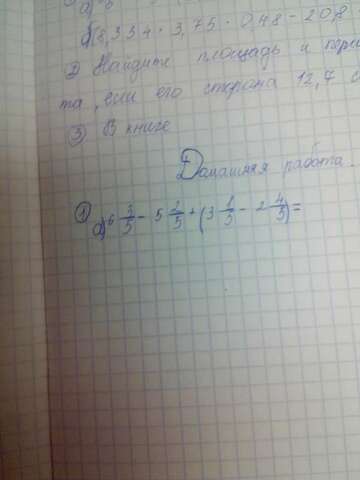 а)
б) 8,354 · 3,75 · 0,48 - 20,8
2) Найдите площадь и
та, если его сторона 12,7 с
3) В книге
Домашняя работа.
1) а) 6 3/5 - 5 2/5 + (3 1/5 - 2 4/5) =